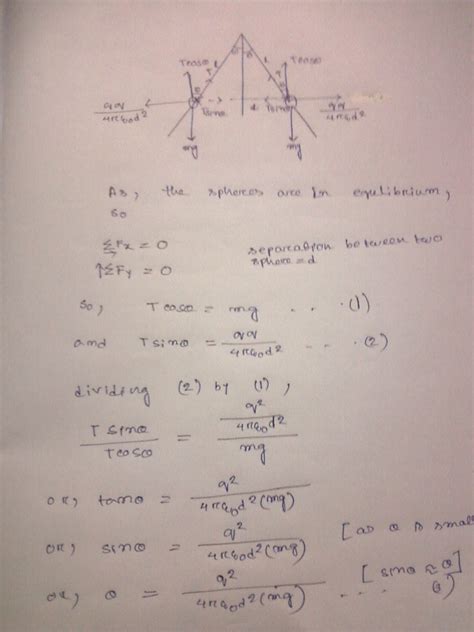 θ θ
Tcosθ l l Tcosθ
θ T T θ
qq/4πε₀d² Tsinθ d Tsinθ qq/4πε₀d²
mg mg
As, the spheres are in equlibrium,
so
ΣFx = 0 separation between two
↑ΣFy = 0 sphere = d
so, Tcosθ = mg . . . . (1)
and Tsinθ = qq/4πε₀d² . . . . (2)
dividing (2) by (1),
Tsinθ/Tcosθ = (q²/4πε₀d²)/mg
or, tanθ = q²/4πε₀d²(mg)
or, sinθ = q²/4πε₀d²(mg) [as θ is small
or, θ = q²/4πε₀d²(mg) [sinθ ≈ θ]
. . . .